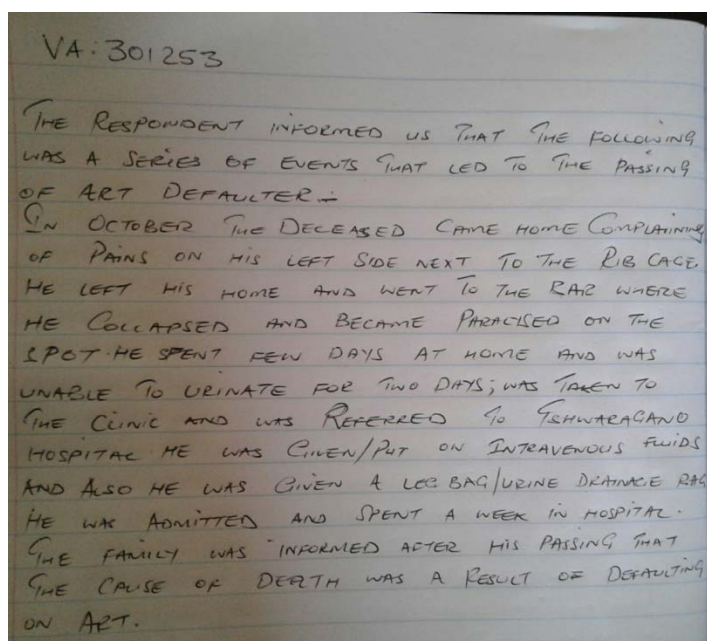 VA: 301253
THE RESPONDENT INFORMED US THAT THE FOLLOWING
WAS A SERIES OF EVENTS THAT LED TO THE PASSING
OF ART DEFAULTER.-
IN OCTOBER THE DECEASED CAME HOME COMPLAINING
OF PAINS ON HIS LEFT SIDE NEXT TO THE RIB CAGE
HE LEFT HIS HOME AND WENT TO THE BAR WHERE
HE COLLAPSED AND BECAME PARALYSED ON THE
SPOT. HE SPENT FEW DAYS AT HOME AND WAS
UNABLE TO URINATE FOR TWO DAYS; WAS TAKEN TO
THE CLINIC AND WAS REFERRED TO TSHWARAGANO
HOSPITAL HE WAS GIVEN/PUT ON INTRAVENOUS FLUIDS
AND ALSO HE WAS GIVEN A LEG BAG/URINE DRAINAGE BAG
HE WAS ADMITTED AND SPENT A WEEK IN HOSPITAL.
THE FAMILY WAS INFORMED AFTER HIS PASSING THAT
THE CAUSE OF DEATH WAS A RESULT OF DEFAULTING
ON ART.